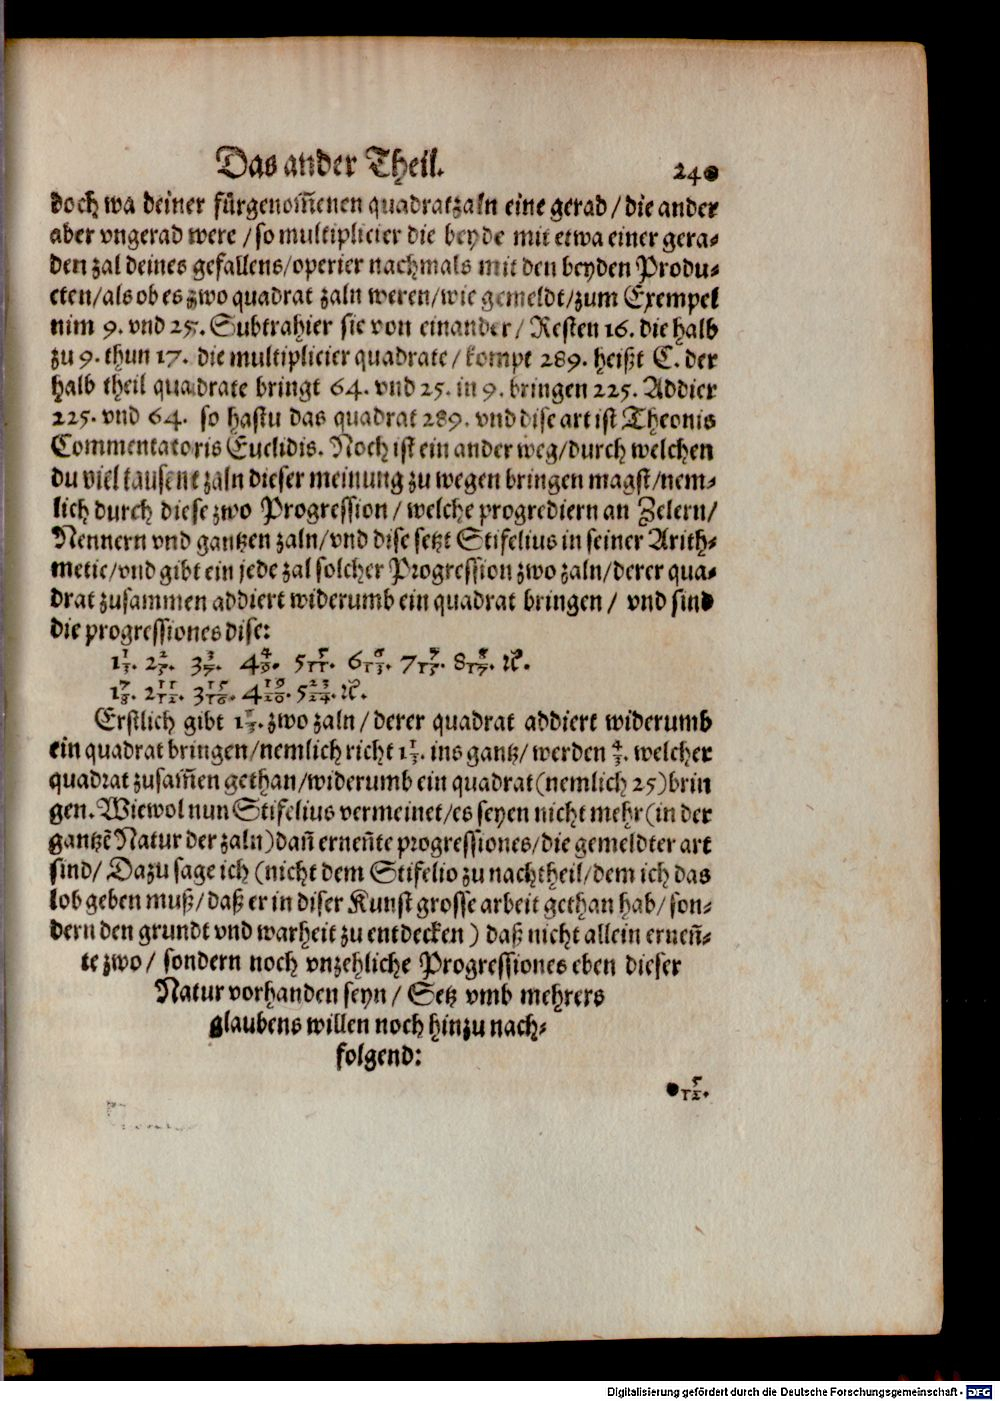 Das ander Theil. 24
doch wa deiner fürgenom̃enen quadratzaln eine gerad / die ander
aber vngerad were / so multiplicier die beyde mit etwa einer gera⸗
den zal deines gefallens/operier nachmals mit den beyden Produ⸗
cten/als ob es zwo quadrat zaln weren/wie gemeldt/zum Exempel
nim 9. vnd 25. Subtrahier sie von einander / Resten 16. die halb
zu 9. thun 17. die multiplicier quadrate / kompt 289. heißt C. der
halb theil quadrate bringt 64. vnd 25. in 9. bringen 225. Addier
225. vnd 64. so hastu das quadrat 289. vnd dise art ist Theonis
Commentatoris Euclidis. Noch ist ein ander weg/durch welchen
du viel tausent zaln dieser meinung zu wegen bringen magst/nem⸗
lich durch diese zwo Progression / welche progrediern an Zelern/
Nennern vnd gantzen zaln/vnd dise setzt Stifelius in seiner Arith⸗
metic/vnd gibt ein jede zal solcher Progression zwo zaln/derer qua⸗
drat zusammen addiert widerumb ein quadrat bringen / vnd sind
die progressiones dise:
1 1/3. 2 2/5. 3 3/7. 4 4/9. 5 5/11. 6 6/13. 7 7/15. 8 8/17. ꝛc.
1 7/8. 2 11/12. 3 15/16. 4 19/20. 5 23/24. ꝛc.
Erstlich gibt 1 1/3. zwo zaln / derer quadrat addiert widerumb
ein quadrat bringen/nemlich richt 1 1/3. ins gantz/ werden 4/3. welcher
quadrat zusam̃en gethan/widerumb ein quadrat (nemlich 25) brin
gen. Wiewol nun Stifelius vermeinet/es seyen nicht mehr (in der
gantzẽ Natur der zaln) dañ erneñte progressiones/die gemeldter art
sind/ Dazu sage ich (nicht dem Stifelio zu nachtheil/dem ich das
lob geben muß/daß er in diser Kunst grosse arbeit gethan hab/ son⸗
dern den grundt vnd warheit zu entdecken ) daß nicht allein erneñ⸗
te zwo / sondern noch vnzehliche Progressiones eben dieser
Natur vorhanden seyn / Setz vmb mehrers
glaubens willen noch hinzu nach⸗
folgend:
5/12.
Digitalisierung gefördert durch die Deutsche Forschungsgemeinschaft - DFG